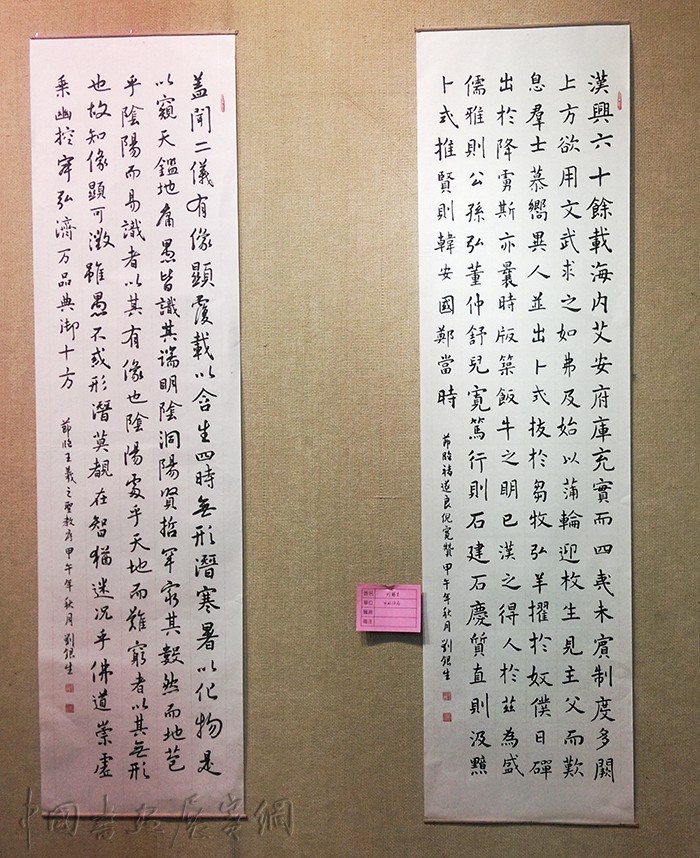 漢興六十餘載海内艾安府庫充實而四夷未賓制度多闕
上方欲用文武求之如弗及始以蒲輪迎枚生見主父而歎
息羣士慕嚮異人並出卜式拔於芻牧弘羊擢於奴僕日磾
出於降虜斯亦曩時版築飯牛之明已漢之得人於茲為盛
儒雅則公孫弘董仲舒兒寬篤行則石建石慶質直則汲黯
卜式推賢則韓安國鄭當時
節臨褚遂良倪寬贊甲午年秋月劉銀生
盖聞二儀有像顯覆載以含生四時無形潛寒暑以化物是
以窺天鑑地庸愚皆識其端明陰洞陽賢哲罕窮其數然而地苞
乎陰陽而易識者以其有像也陰陽處乎天地而難窮者以其無形
也故知像顯可徵雖愚不或形潛莫覩在智猶迷況乎佛道崇虛
乘幽控寂弘濟万品典御十方
節臨王羲之聖教序甲午年秋月劉銀生
中國書畫展賽網